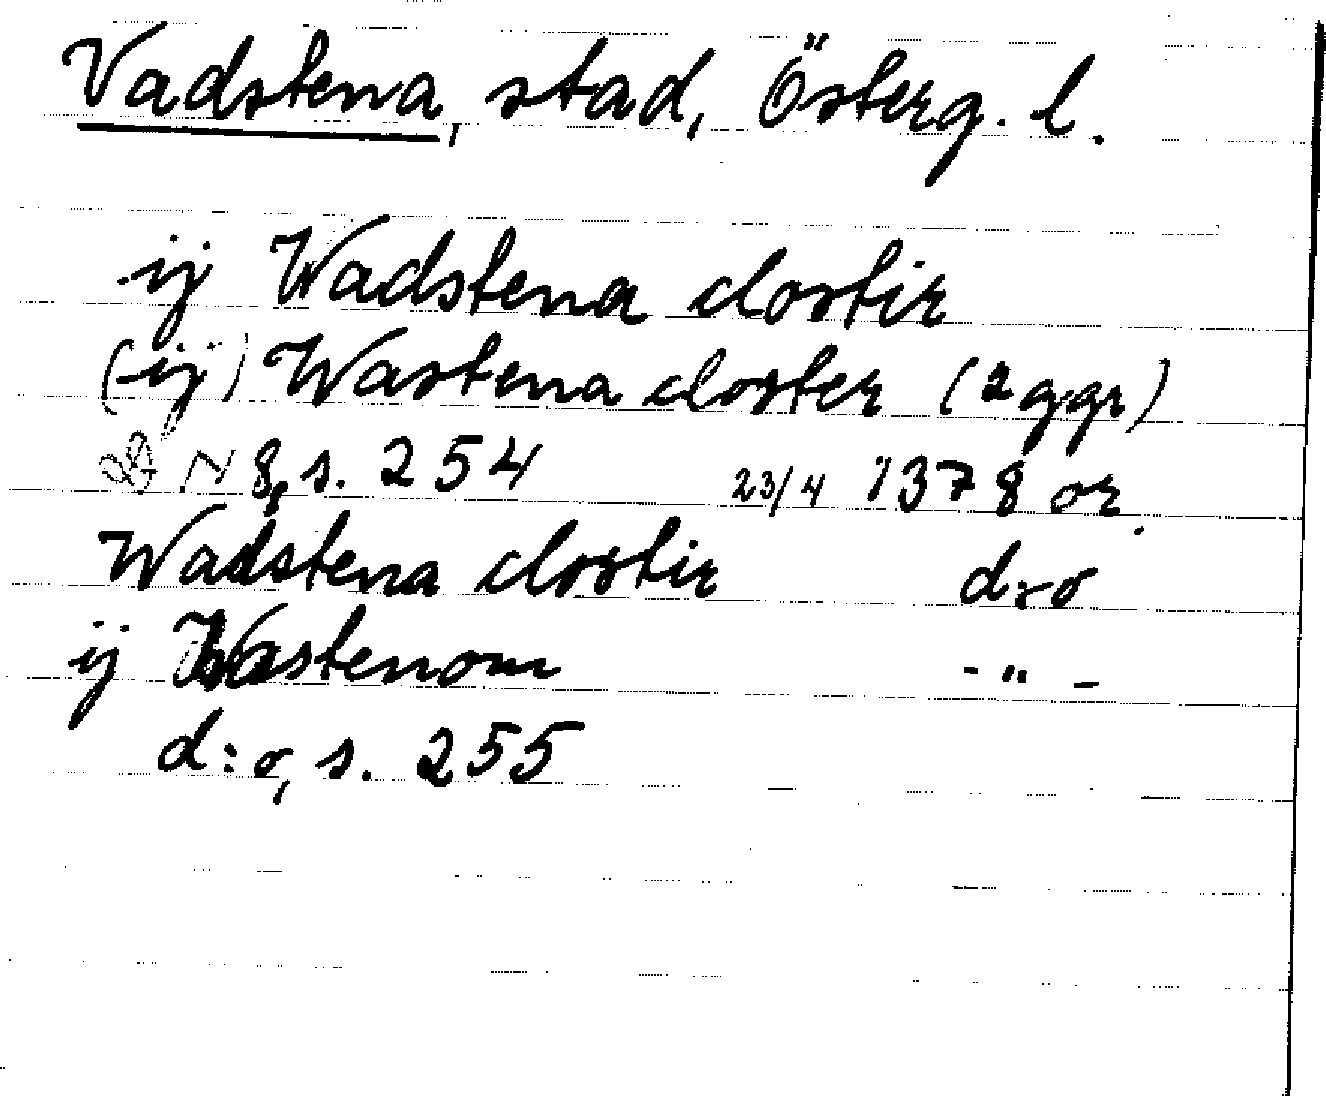 Vadstena, stad, Österg. l.
ij Wadstena clostir
(ij) Wastena closter (2 ggr)
8, s. 254 23/4 1378 or.
Wadstena clostir d:o
ij Wastenom - " -
d:o, s. 255